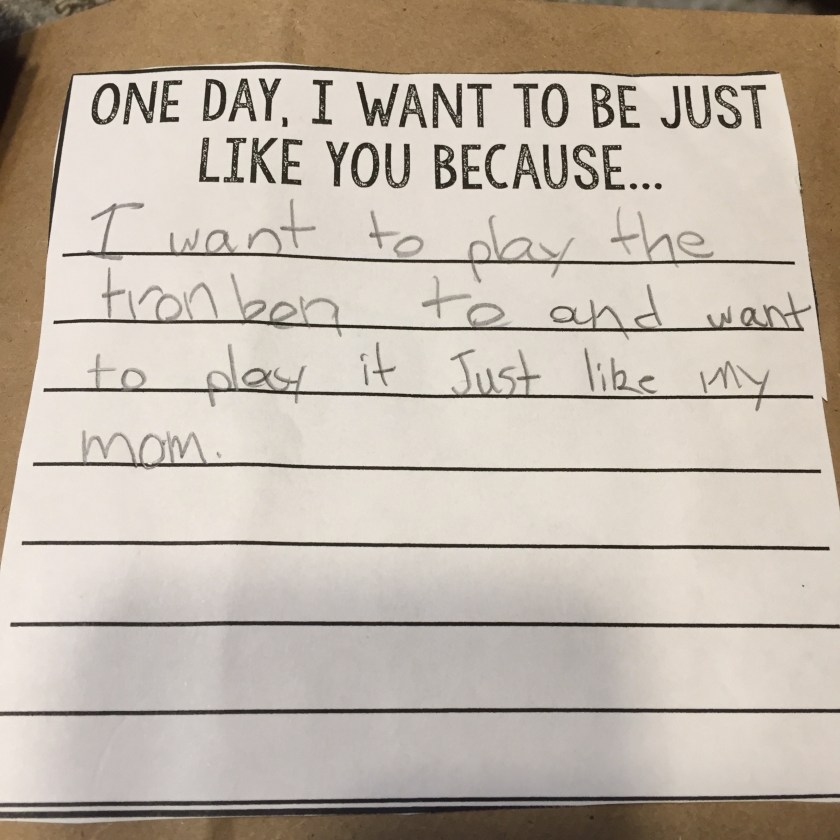 ONE DAY, I WANT TO BE JUST
LIKE YOU BECAUSE...
I want to play the
tronben to and want
to play it Just like my
mom.